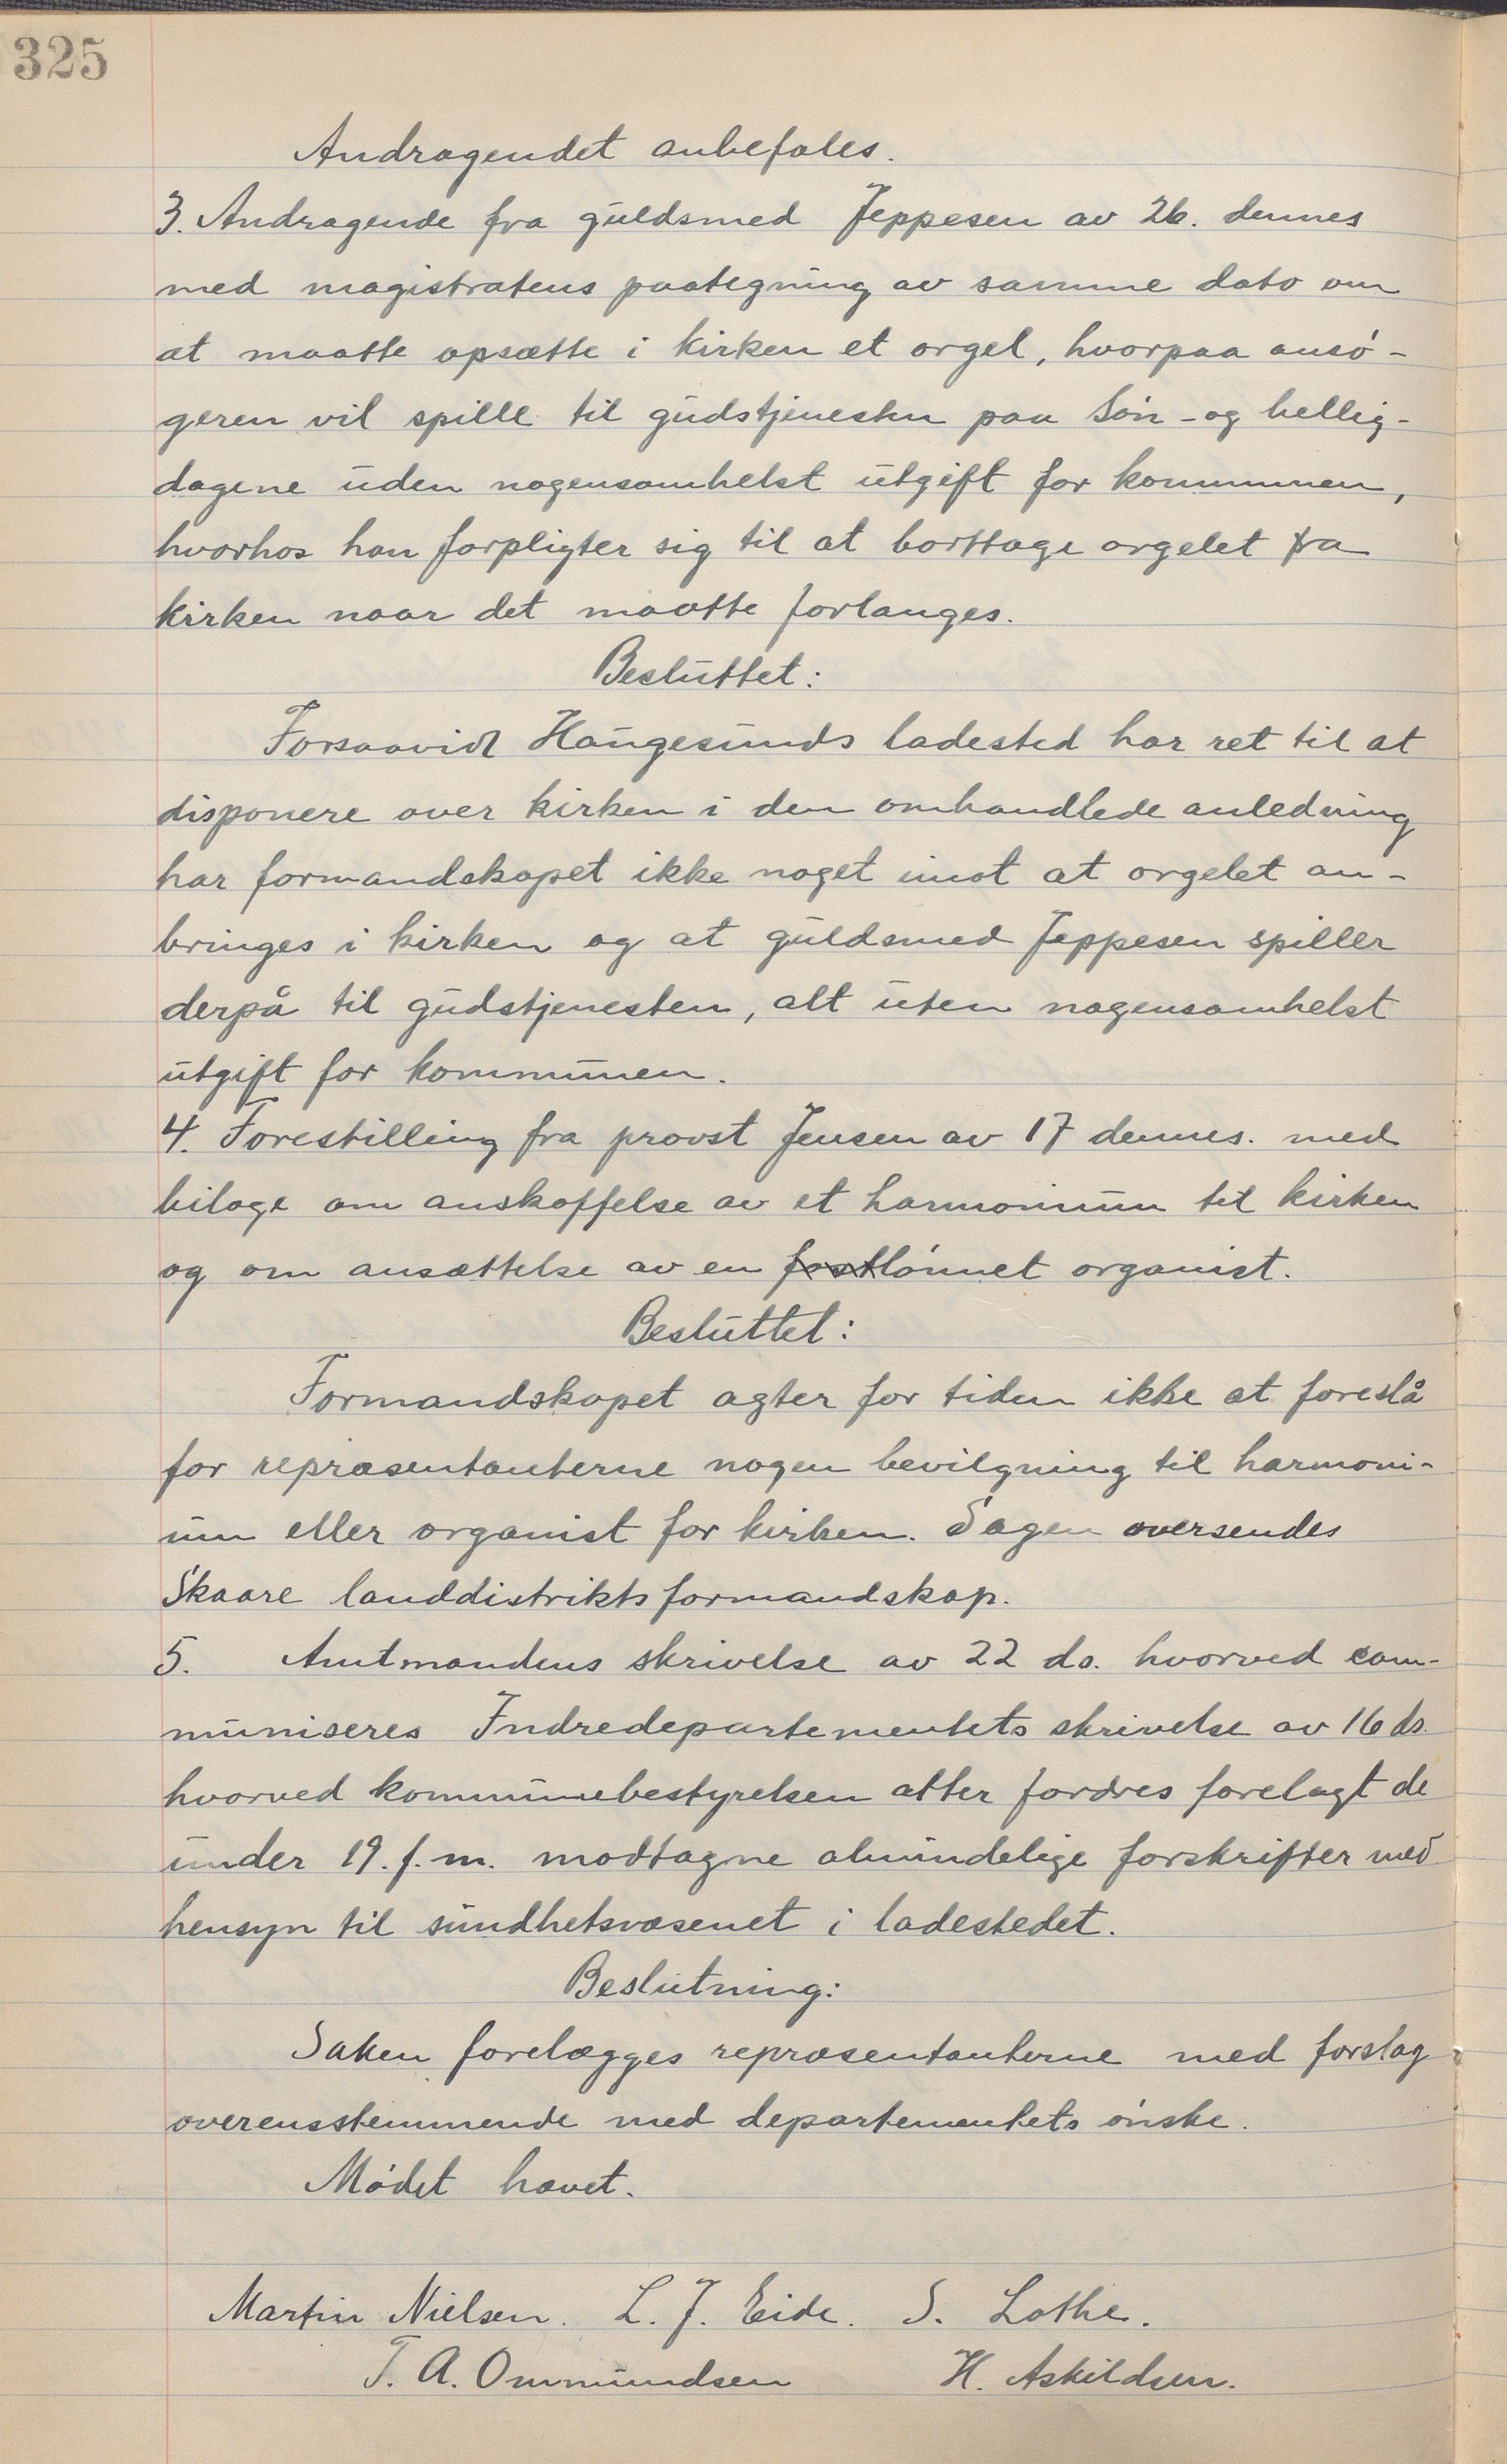 325
Andragendet anbefales.
3. Andragende fra guldsmed Jeppesen av 26. dennes
med magistratens paategning av samme dato om
at maatte opsætte i kirken et orgel, hvorpaa ansö-
geren vil spille til gudstjenesten paa Sön- og hellig-
dagene uden nogensomhelst utgift for kommunen,
hvorhos han forpligter sig til at borttage orgelet fra
kirken naar det maatte forlanges.
Besluttet:
Forsaavidt Haugesunds ladested har ret til at
disponere over kirken i den omhandlede anledning
har formandskapet ikke noget imot at orgelet an-
bringes i kirken og at guldsmed Jeppesen spiller
derpå til gudstjenesten, alt uten nogensomhelst
utgift for kommunen.
4. Forestilling fra provst Jensen av 17 dennes. med
bilage om anskaffelse av et harmonium til kirken
og om ansættelse av en fastlönnet organist.
Besluttet:
Formandskapet agter for tiden ikke at foreslå
for repræsentanterne nogen bevilgning til harmoni-
um eller organist for kirken. Sagen oversendes
Skaare landdistrikts formandskap.
5. Amtmandens skrivelse av 22 ds. hvorved com-
muniseres Indredepartementets skrivelse av 16 ds.
hvorved kommunebestyrelsen atter fordres forelagt de
under 19. f. m. modtagne almindelige forskrifter med
hensyn til sundhetsvæsenet i ladestedet.
Beslutning:
Saken forelægges repræsentanterne med forslag
overensstemmende med departementets önske.
Mödet hævet.
Martin Nielsen. L. J. Eide. S. Lothe.
T. A. Ommundsen H. Askildsen.